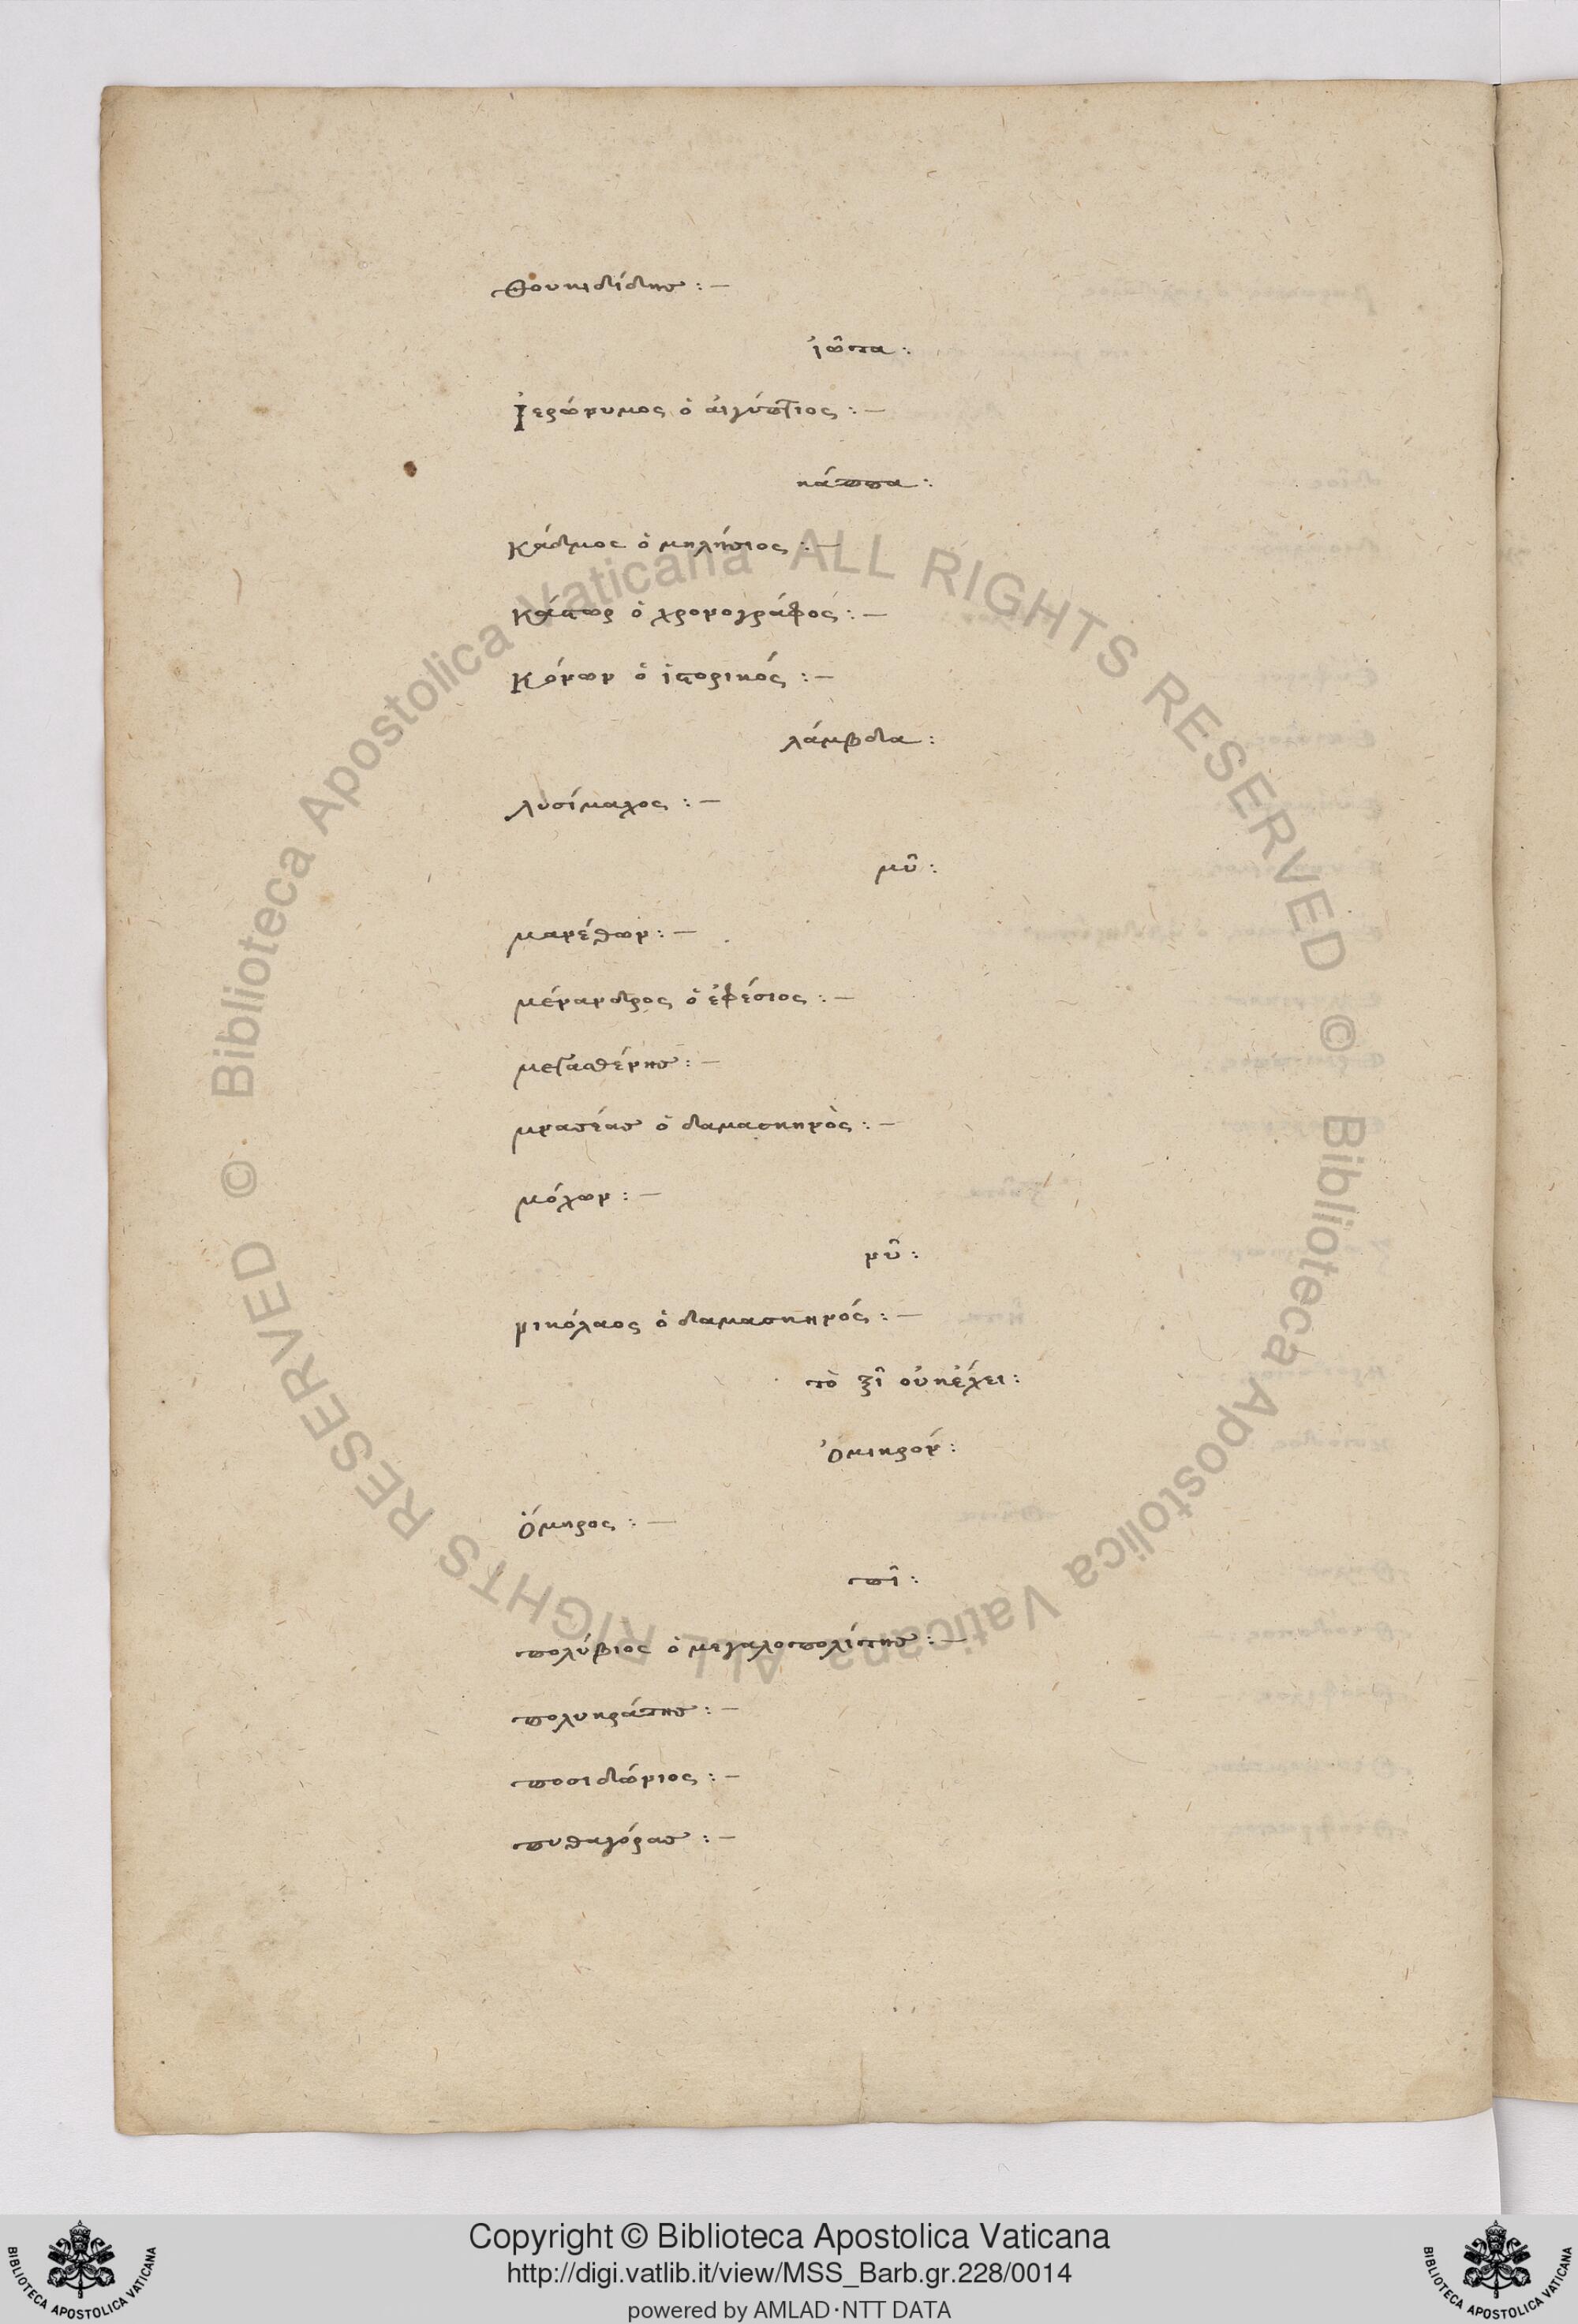 Θουκιδίδης : –
ἰῶτα :
Ἱερώνυμος ὁ αἰγύπτιος : –
κάππα :
Κάδμος ὁ μηλήσιος : –
Κάστωρ ὁ χρονογράφος : –
Κόνων ὁ ἱστορικός : –
λάμβδα :
λυσίμαχος : –
μῦ :
μανέθων : –
μένανδρος ὁ ἐφέσιος : –
μετασθένης : –
μνασέας ὁ δαμασκηνὸς : –
μόλων : –
νῦ :
νικόλαος ὁ δαμασκηνός : –
τὸ ξῖ οὐκ ἔχει :
ὀμικρόν :
Ὅμηρος : –
πῖ :
πολύβιος ὁ μεγαλοπολίτης : –
πολυκράτης : –
ποσιδώνιος : –
πυθαγόρας : –
© Biblioteca Apostolica Vaticana ALL RIGHTS RESERVED
© Biblioteca Apostolica Vaticana ALL RIGHTS RESERVED
Copyright © Biblioteca Apostolica Vaticana
http://digi.vatlib.it/view/MSS_Barb.gr.228/0014
powered by AMLAD·NTT DATA
BIBLIOTECA APOSTOLICA VATICANA
BIBLIOTECA APOSTOLICA VATICANA